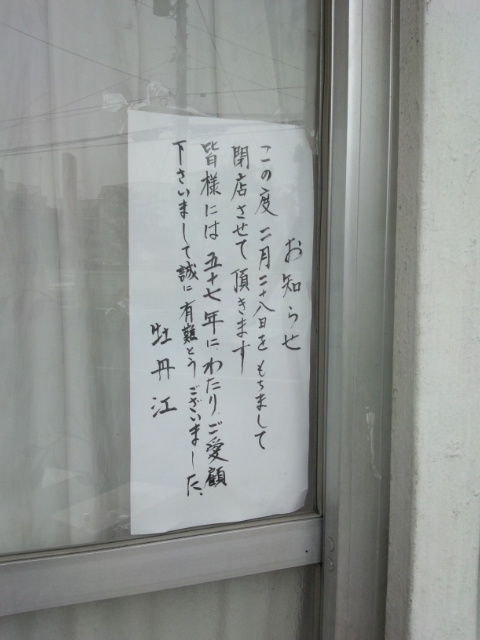 お知らせ
この度 二月二十八日をもちまして
閉店させて頂きます
皆様には 五十七年に わたり ご愛顧
下さいまして 誠に 有難とう ございました、
牡丹江